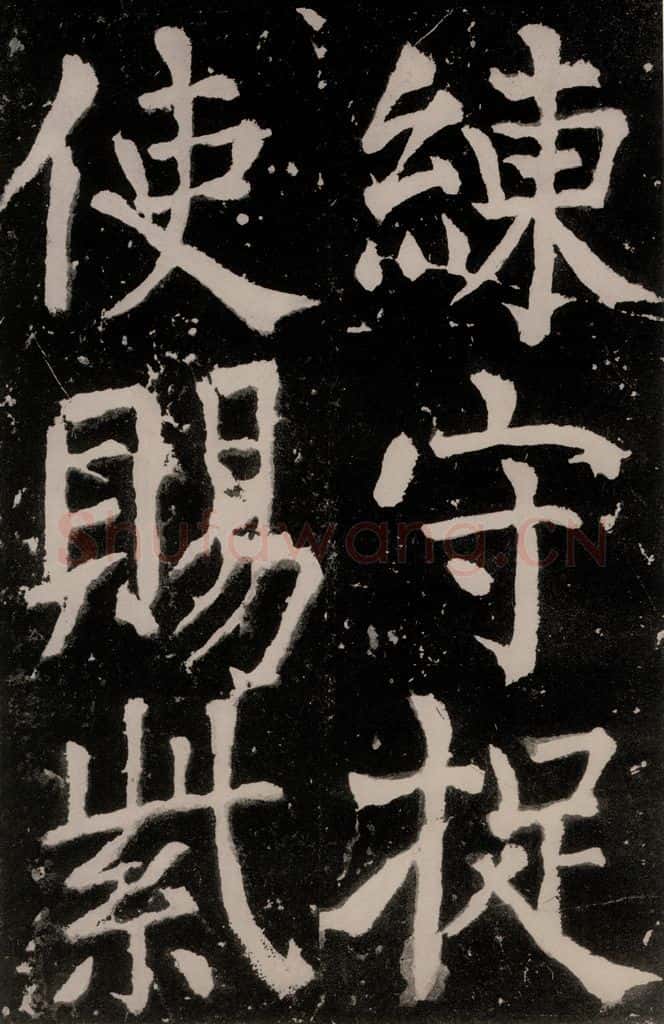 練守捉
使賜紫
Shufawang.CN